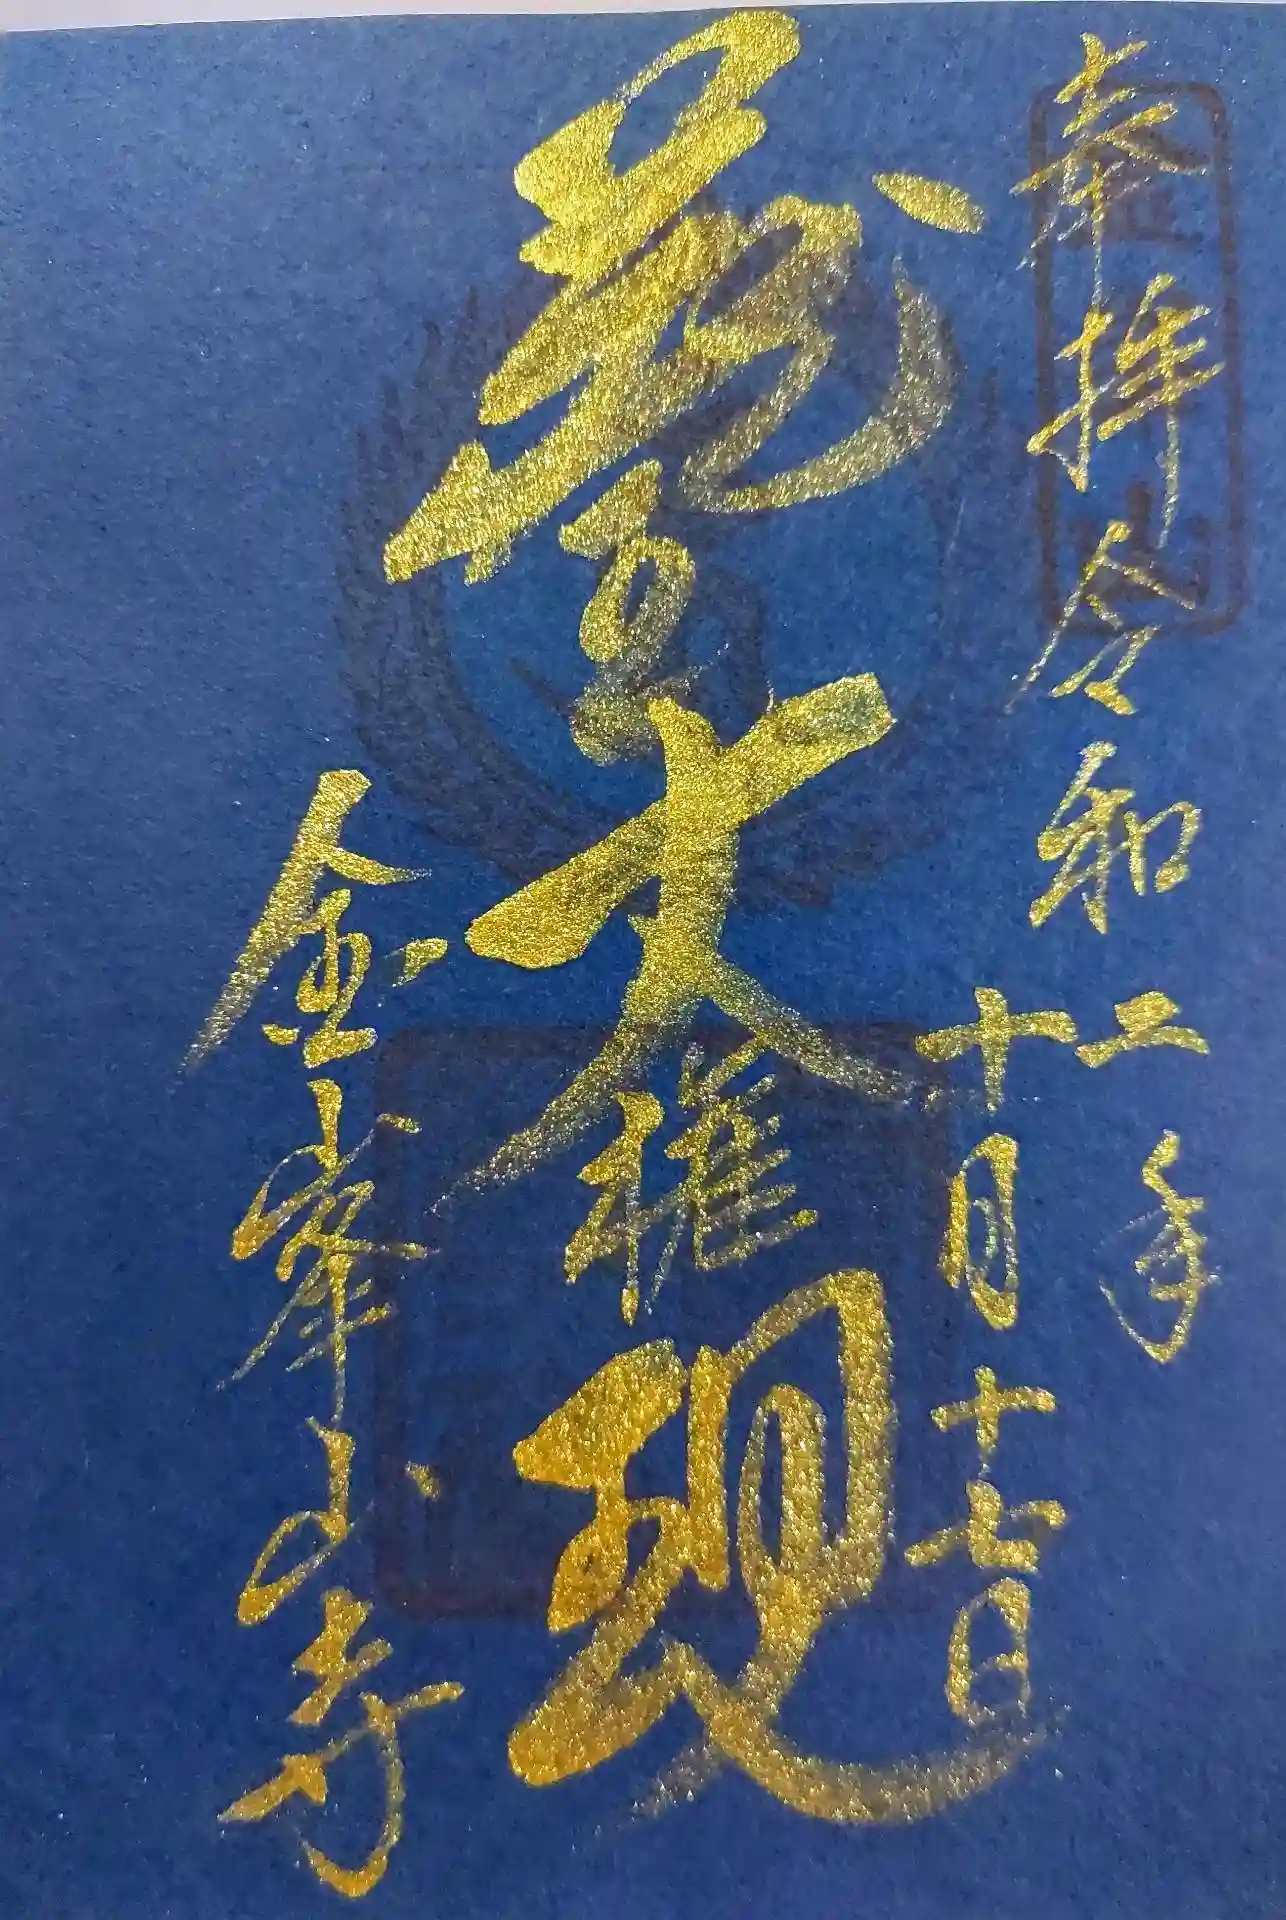 奉拝令和二年
十月十七日
蔵王大権現
金峯山寺